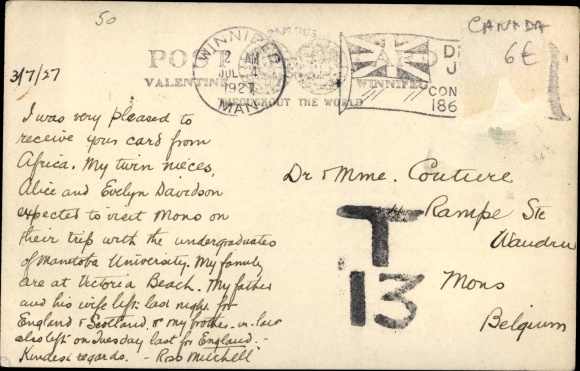 50
CANADA
6€
FAMOUS
POST CARD
VALENTINE WINNIPEG
THROUGHOUT THE WORLD
WINNIPEG
2 AM
JUL 4
1927
MAN
CON
186
3/7/27
I was very pleased to
receive your card from
Africa. My twin nieces,
Alice and Evelyn Davidson
expected to visit Mons on
their trip with the undergraduates
of Manitoba University. My family
are at Victoria Beach. My father
and his wife left last night for
England & Scotland & my brother-in-law
also left on Tuesday last for England. -
Kindest regards. - Ross Mitchell
Dr & Mme. Couture
Rampe Ste
Waudru
Mons
Belgium
T
13